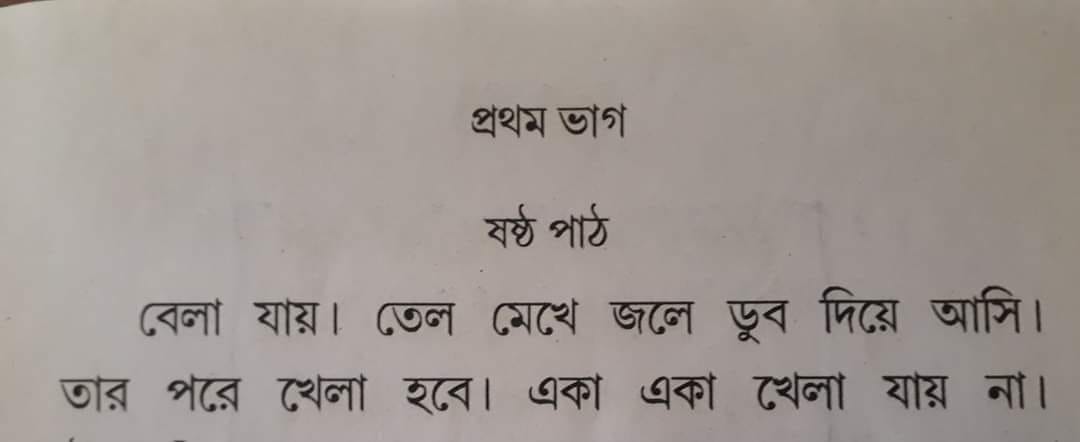 প্রথম ভাগ
ষষ্ঠ পাঠ
বেলা যায়। তেল মেখে জলে ডুব দিয়ে আসি।
তার পরে খেলা হবে। একা একা খেলা যায় না।